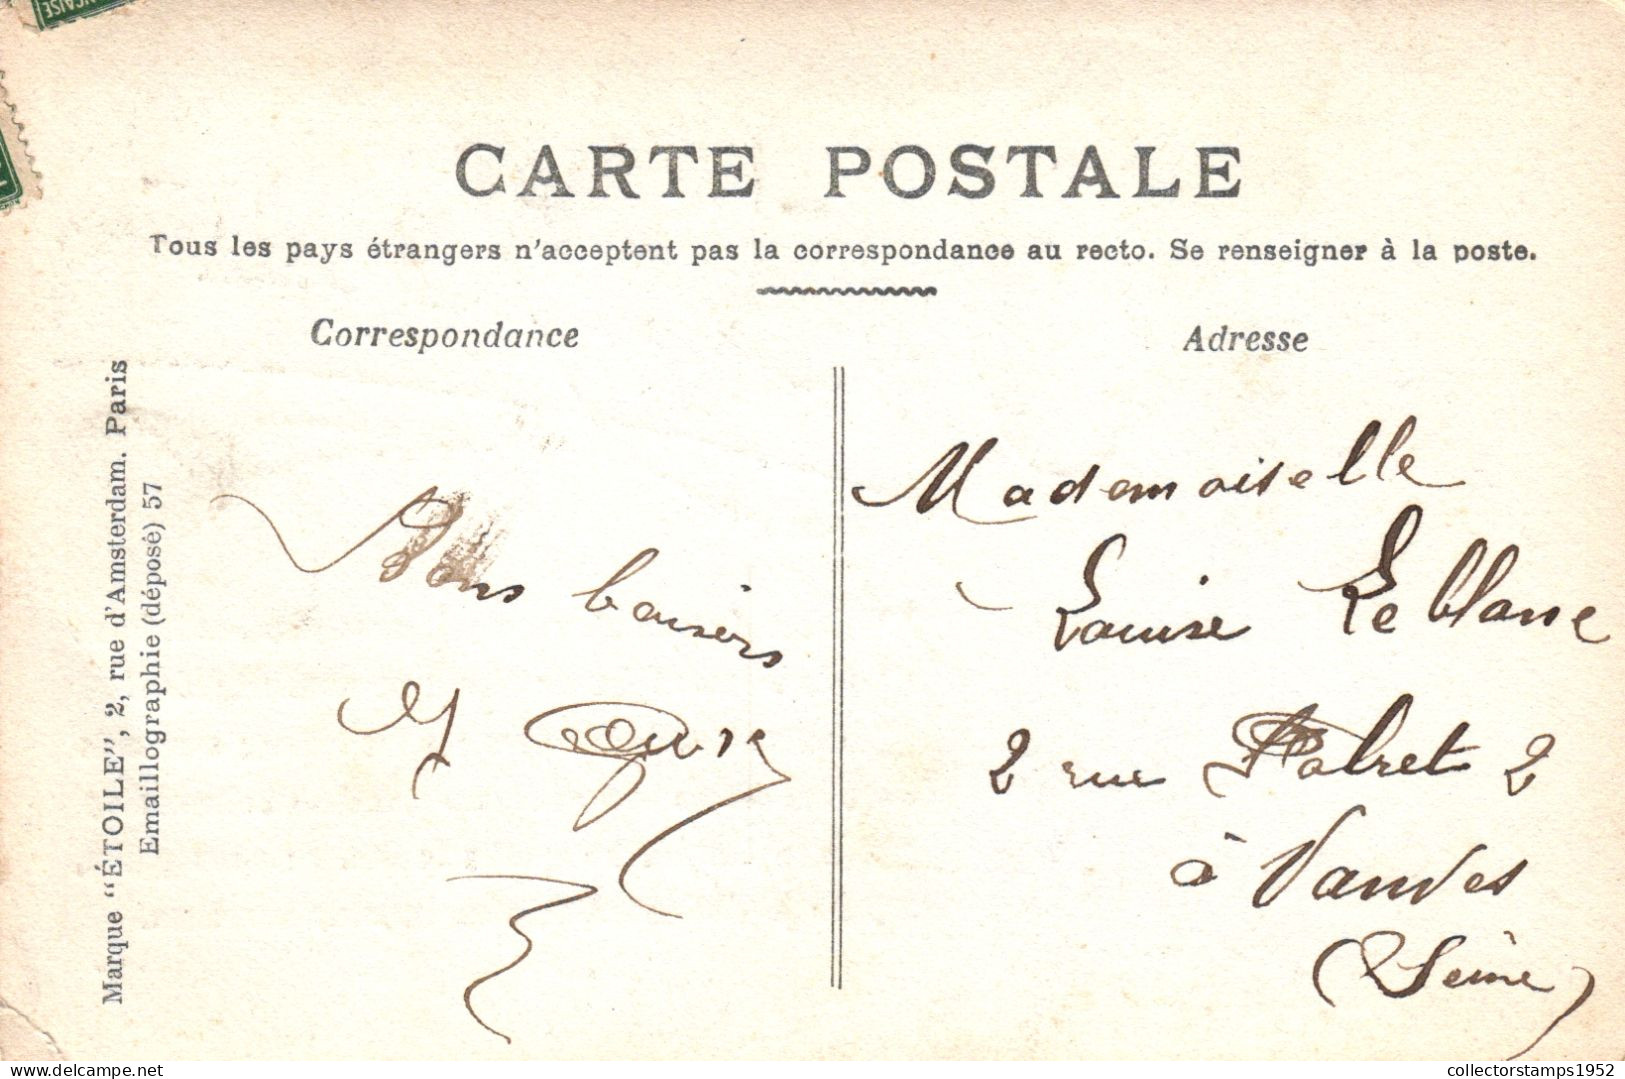 CARTE POSTALE
Tous les pays étrangers n'acceptent pas la correspondance au recto. Se renseigner à la poste.
Correspondance
Adresse
Marque “ÉTOILE”, 2, rue d'Amsterdam. Paris
Emaillographie (déposé) 57
Bons baisers
Mademoiselle
Louise Leblanc
2 rue 2
à Vanves
(Seine)
collectorstamps1952